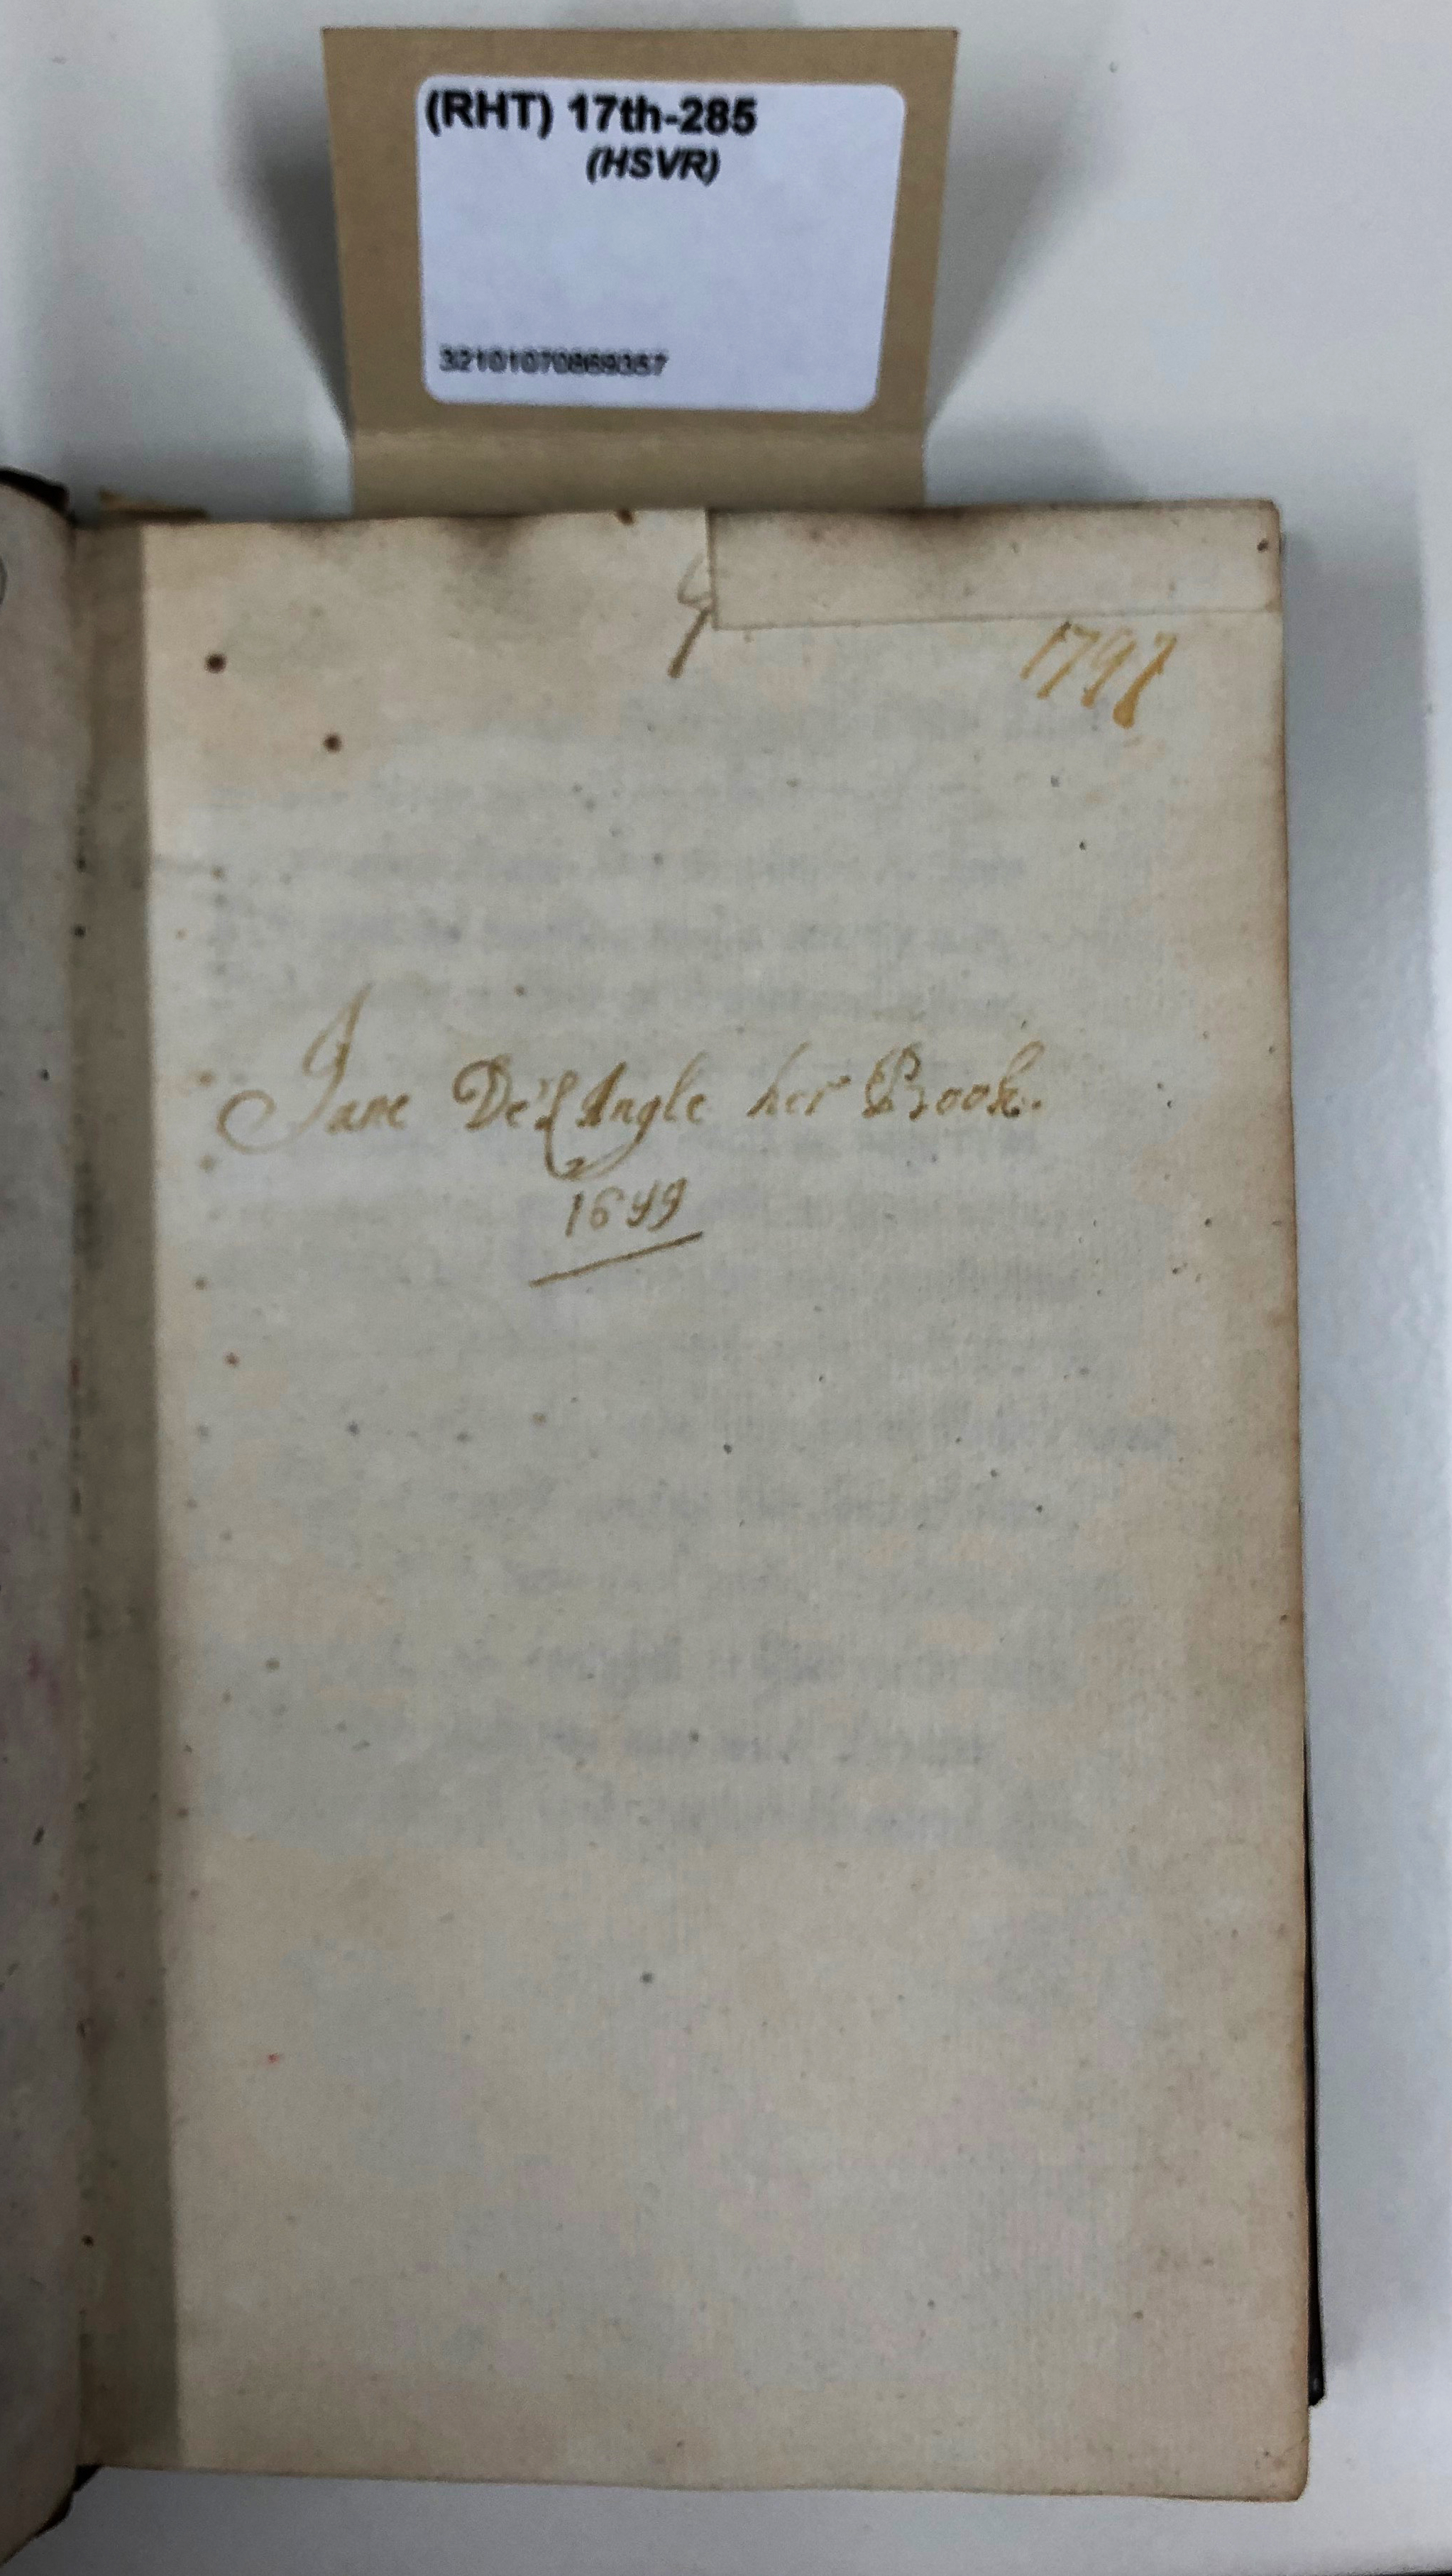 (RHT) 17th-285
(HSVR)
32101070869357
1797
Jane De'L'Angle her Book.
1699